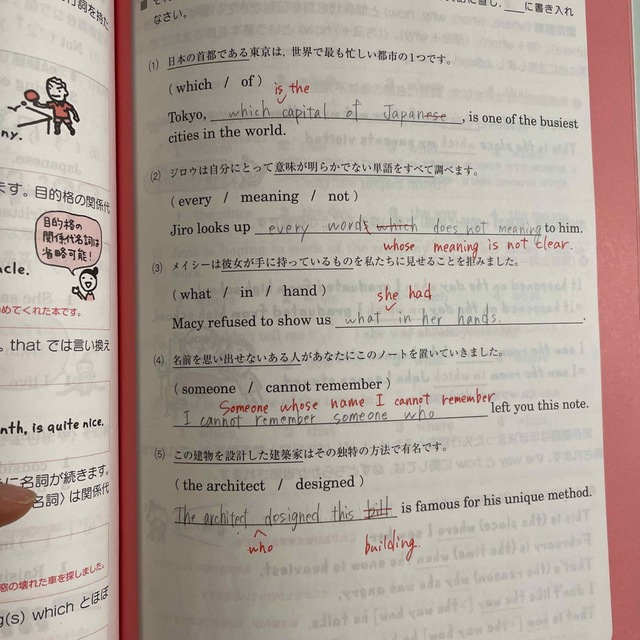 に書き入れ
なさい。
(1) 日本の首都である東京は，世界で最も忙しい都市の1つです。
( which / of )
is the
Tokyo, which capital of Japanese , is one of the busiest
cities in the world.
(2) ジロウは自分にとって意味が明らかでない単語をすべて調べます。
( every / meaning / not )
Jiro looks up every words which does not meaning to him.
whose meaning is not clear.
(3) メイシーは彼女が手に持っているものを私たちに見せることを拒みました。
( what / in / hand )
she had
Macy refused to show us what in her hands.
(4) 名前を思い出せないある人があなたにこのノートを置いていきました。
( someone / cannot remember )
Someone whose name I cannot remember
I cannot remember someone who left you this note.
(5) この建物を設計した建築家はその独特の方法で有名です。
( the architect / designed )
The architect dosigned this bill is famous for his unique method.
who building.
ny.
ます。目的格の関係代
目的格の
関係代名詞は
省略可能！
cle.
めてくれた本です。
。that では言い換え
nth, is quite nice.
に名詞が続きます。
名詞〉は関係代
窓の壊れた車を探しました。
g(s) which とほぼ